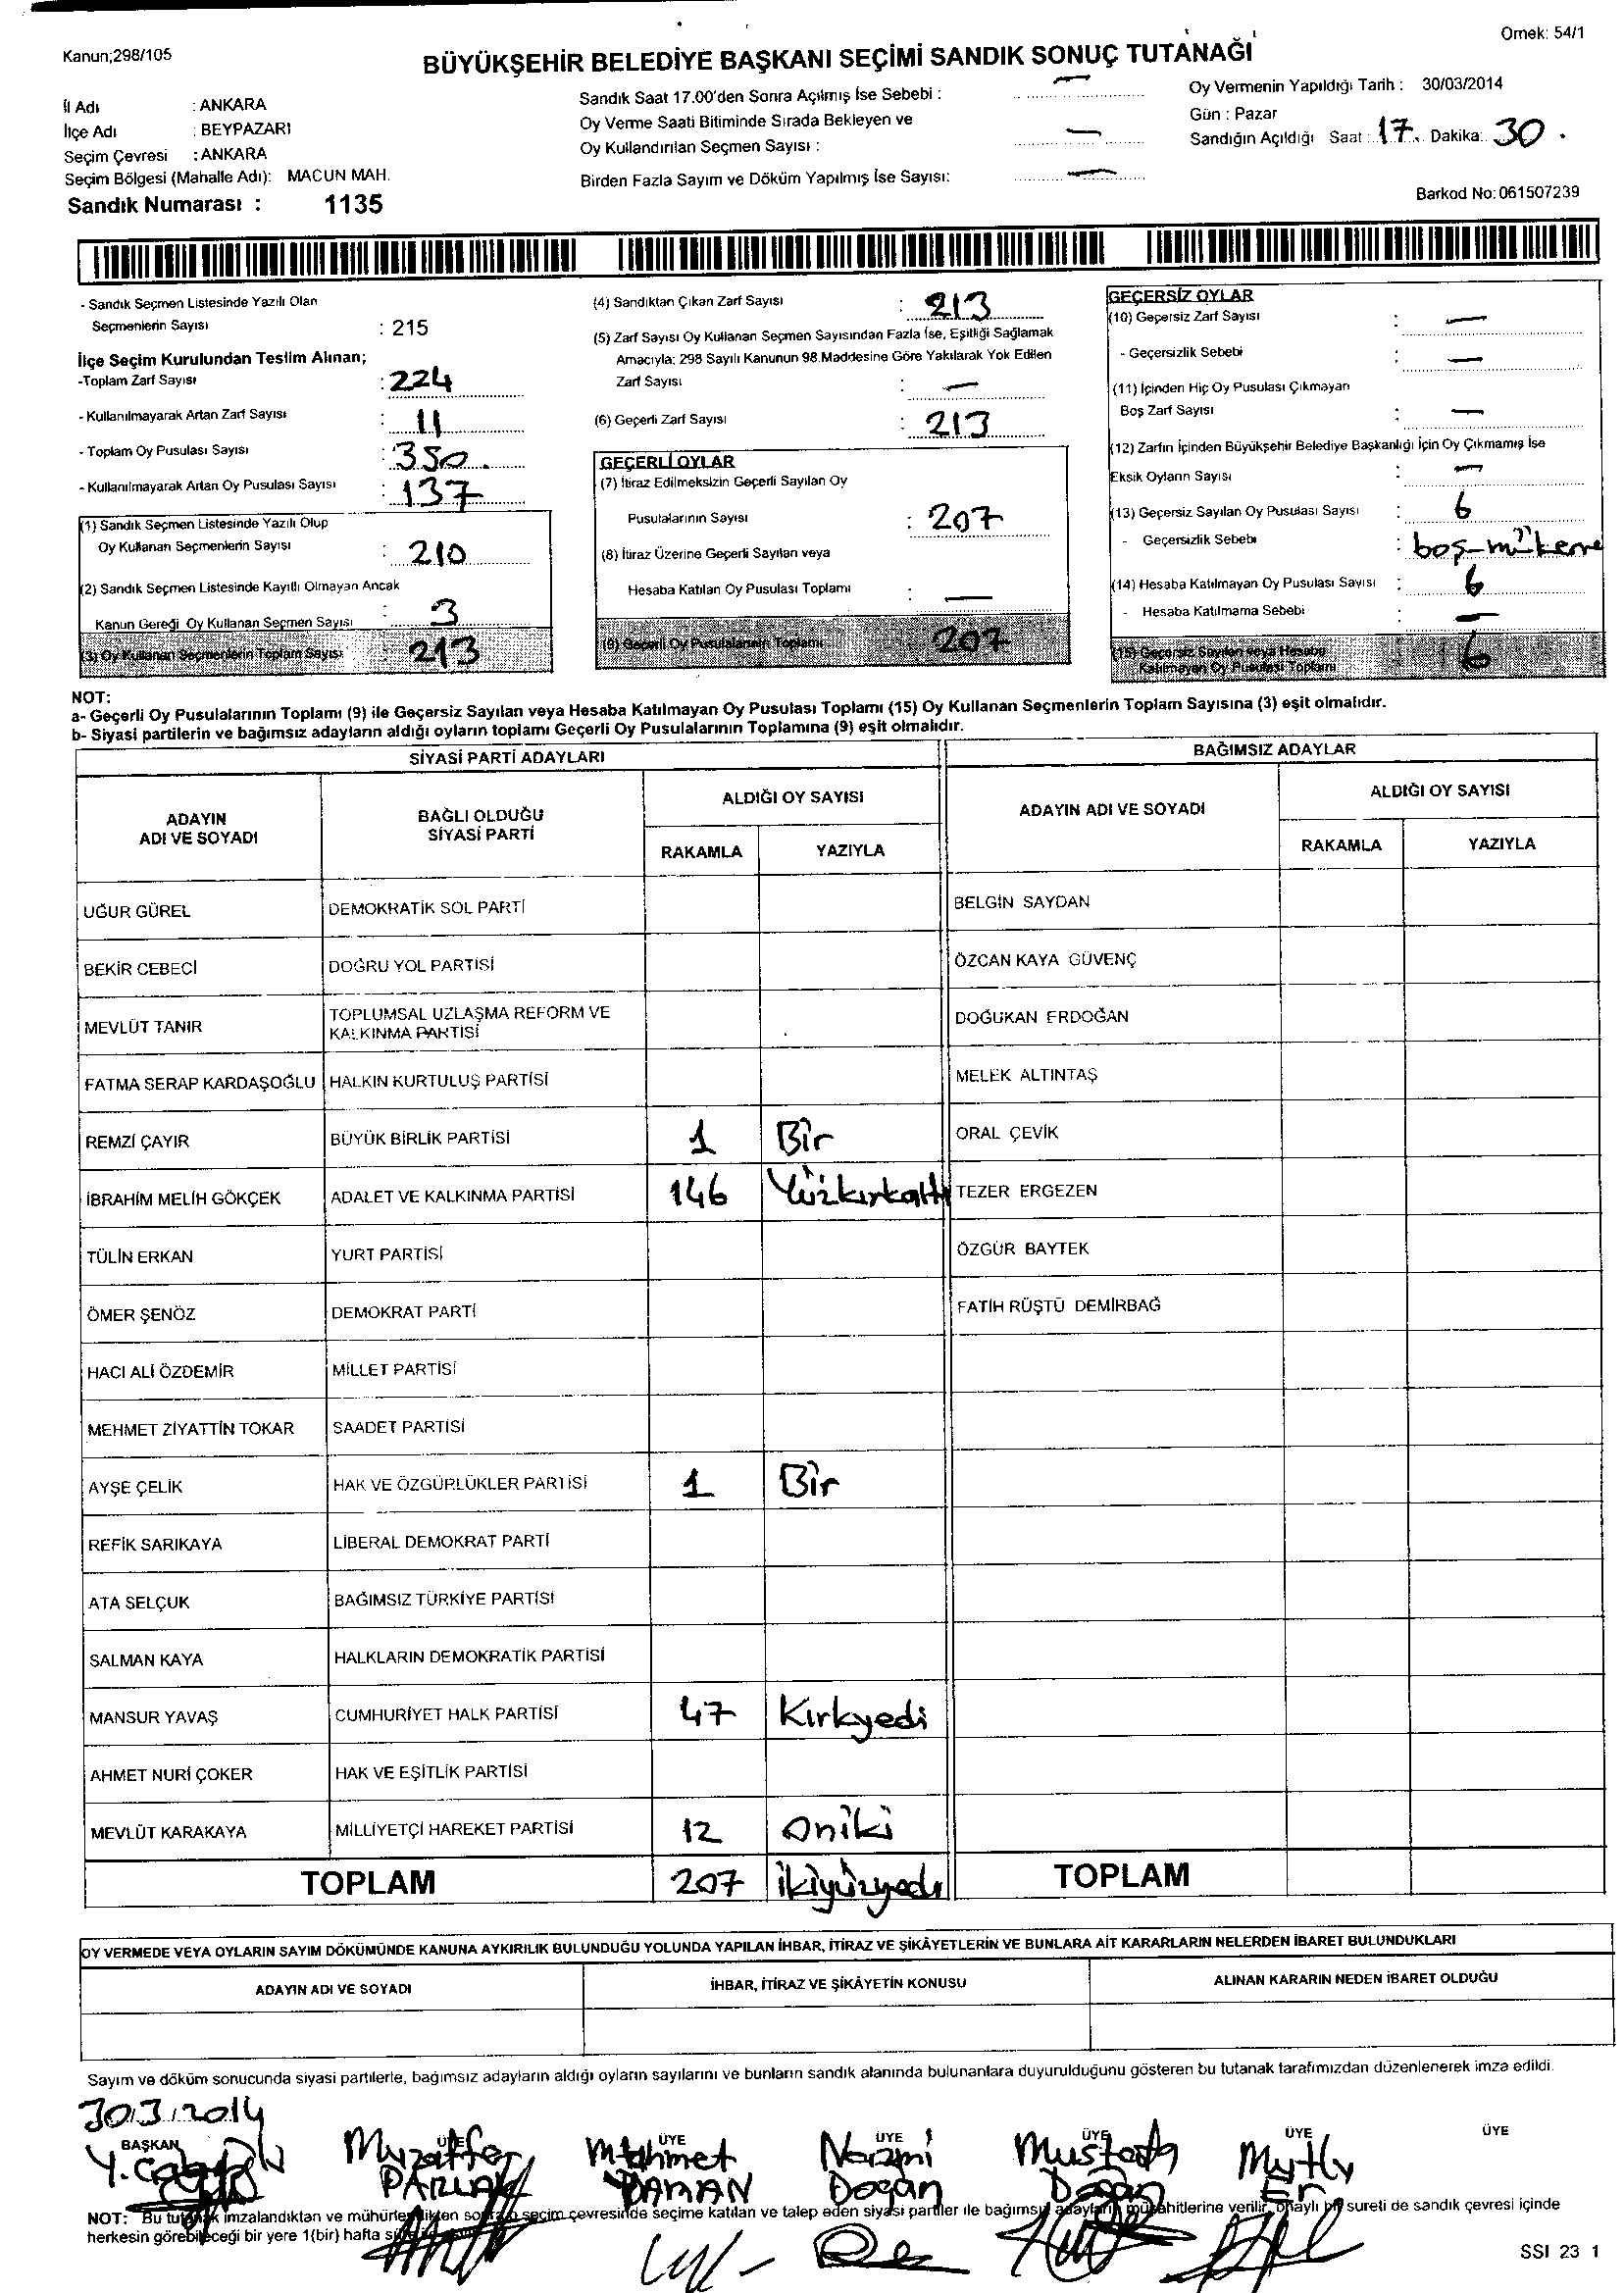 Kanun;298/105
Ornek: 54/1
BÜYÜKŞEHİR BELEDİYE BAŞKANI SEÇİMİ SANDIK SONUÇ TUTANAĞI
İl Adı : ANKARA
İlçe Adı : BEYPAZARI
Seçim Çevresi : ANKARA
Seçim Bölgesi (Mahalle Adı): MACUN MAH.
Sandık Numarası : 1135
Sandık Saat 17.00'den Sonra Açılmış İse Sebebi : —
Oy Verme Saati Bitiminde Sırada Bekleyen ve
Oy Kullandırılan Seçmen Sayısı : —
Birden Fazla Sayım ve Döküm Yapılmış İse Sayısı: —
Oy Vermenin Yapıldığı Tarih : 30/03/2014
Gün : Pazar
Sandığın Açıldığı Saat : 17 Dakika: 30.
Barkod No: 061507239
- Sandık Seçmen Listesinde Yazılı Olan
Seçmenlerin Sayısı : 215
İlçe Seçim Kurulundan Teslim Alınan;
-Toplam Zarf Sayısı : 224
- Kullanılmayarak Artan Zarf Sayısı : 11
- Toplam Oy Pusulası Sayısı : 350.
- Kullanılmayarak Artan Oy Pusulası Sayısı : 137
(1) Sandık Seçmen Listesinde Yazılı Olup
Oy Kullanan Seçmenlerin Sayısı : 210
(2) Sandık Seçmen Listesinde Kayıtlı Olmayan Ancak
Kanun Gereği Oy Kullanan Seçmen Sayısı : 3
(3) Oy Kullanan Seçmenlerin Toplam Sayısı : 213
(4) Sandıktan Çıkan Zarf Sayısı : 213
(5) Zarf Sayısı Oy Kullanan Seçmen Sayısından Fazla İse, Eşitliği Sağlamak
Amacıyla; 298 Sayılı Kanunun 98.Maddesine Göre Yakılarak Yok Edilen
Zarf Sayısı : —
(6) Geçerli Zarf Sayısı : 213
GEÇERLİ OYLAR
(7) İtiraz Edilmeksizin Geçerli Sayılan Oy
Pusulalarının Sayısı : 207
(8) İtiraz Üzerine Geçerli Sayılan veya
Hesaba Katılan Oy Pusulası Toplamı : —
(9) Geçerli Oy Pusulalarının Toplamı : 207
GEÇERSİZ OYLAR
(10) Geçersiz Zarf Sayısı : —
- Geçersizlik Sebebi : —
(11) İçinden Hiç Oy Pusulası Çıkmayan
Boş Zarf Sayısı : —
(12) Zarfın İçinden Büyükşehir Belediye Başkanlığı İçin Oy Çıkmamış İse
Eksik Oyların Sayısı : —
(13) Geçersiz Sayılan Oy Pusulası Sayısı : 6
- Geçersizlik Sebebi : boş-mükerre
(14) Hesaba Katılmayan Oy Pusulası Sayısı : 6
- Hesaba Katılmama Sebebi : —
(15) Geçersiz Sayılan veya Hesaba
Katılmayan Oy Pusulası Toplamı : 6
NOT:
a- Geçerli Oy Pusulalarının Toplamı (9) ile Geçersiz Sayılan veya Hesaba Katılmayan Oy Pusulası Toplamı (15) Oy Kullanan Seçmenlerin Toplam Sayısına (3) eşit olmalıdır.
b- Siyasi partilerin ve bağımsız adayların aldığı oyların toplamı Geçerli Oy Pusulalarının Toplamına (9) eşit olmalıdır.
SİYASİ PARTİ ADAYLARI
BAĞIMSIZ ADAYLAR
ADAYIN
ADI VE SOYADI
BAĞLI OLDUĞU
SİYASİ PARTİ
ALDIĞI OY SAYISI
RAKAMLA YAZIYLA
ADAYIN ADI VE SOYADI
ALDIĞI OY SAYISI
RAKAMLA YAZIYLA
UĞUR GÜREL DEMOKRATİK SOL PARTİ BELGİN SAYDAN
BEKİR CEBECİ DOĞRU YOL PARTİSİ ÖZCAN KAYA GÜVENÇ
MEVLÜT TANIR TOPLUMSAL UZLAŞMA REFORM VE
KALKINMA PARTİSİ DOĞUKAN ERDOĞAN
FATMA SERAP KARDAŞOĞLU HALKIN KURTULUŞ PARTİSİ MELEK ALTINTAŞ
REMZİ ÇAYIR BÜYÜK BİRLİK PARTİSİ 1 Bir ORAL ÇEVİK
İBRAHİM MELİH GÖKÇEK ADALET VE KALKINMA PARTİSİ 146 Yüzkırkaltı TEZER ERGEZEN
TÜLİN ERKAN YURT PARTİSİ ÖZGÜR BAYTEK
ÖMER ŞENÖZ DEMOKRAT PARTİ FATİH RÜŞTÜ DEMİRBAĞ
HACI ALİ ÖZDEMİR MİLLET PARTİSİ
MEHMET ZİYATTİN TOKAR SAADET PARTİSİ
AYŞE ÇELİK HAK VE ÖZGÜRLÜKLER PARTİSİ 1 Bir
REFİK SARIKAYA LİBERAL DEMOKRAT PARTİ
ATA SELÇUK BAĞIMSIZ TÜRKİYE PARTİSİ
SALMAN KAYA HALKLARIN DEMOKRATİK PARTİSİ
MANSUR YAVAŞ CUMHURİYET HALK PARTİSİ 47 Kırkyedi
AHMET NURİ ÇOKER HAK VE EŞİTLİK PARTİSİ
MEVLÜT KARAKAYA MİLLİYETÇİ HAREKET PARTİSİ 12 Oniki
TOPLAM 207 ikiyüzyedi TOPLAM
OY VERMEDE VEYA OYLARIN SAYIM DÖKÜMÜNDE KANUNA AYKIRILIK BULUNDUĞU YOLUNDA YAPILAN İHBAR, İTİRAZ VE ŞİKÂYETLERİN VE BUNLARA AİT KARARLARIN NELERDEN İBARET BULUNDUKLARI
ADAYIN ADI VE SOYADI İHBAR, İTİRAZ VE ŞİKÂYETİN KONUSU ALINAN KARARIN NEDEN İBARET OLDUĞU
Sayım ve döküm sonucunda siyasi partilerle, bağımsız adayların aldığı oyların sayılarını ve bunların sandık alanında bulunanlara duyurulduğunu gösteren bu tutanak tarafımızdan düzenlenerek imza edildi.
30.3.2014
BAŞKAN ÜYE ÜYE ÜYE ÜYE ÜYE ÜYE
Muzaffer Mehmet Nazmi Mustafa Mutlu
PARLAK YAMAN Doğan Doğan Er
NOT: Bu tutanak imzalandıktan ve mühürlendikten sonra seçim çevresinde seçime katılan ve talep eden siyasi partiler ile bağımsız adayların müşahitlerine verilir, onaylı bir sureti de sandık çevresi içinde
herkesin görebileceği bir yere 1(bir) hafta
SSI 23 1